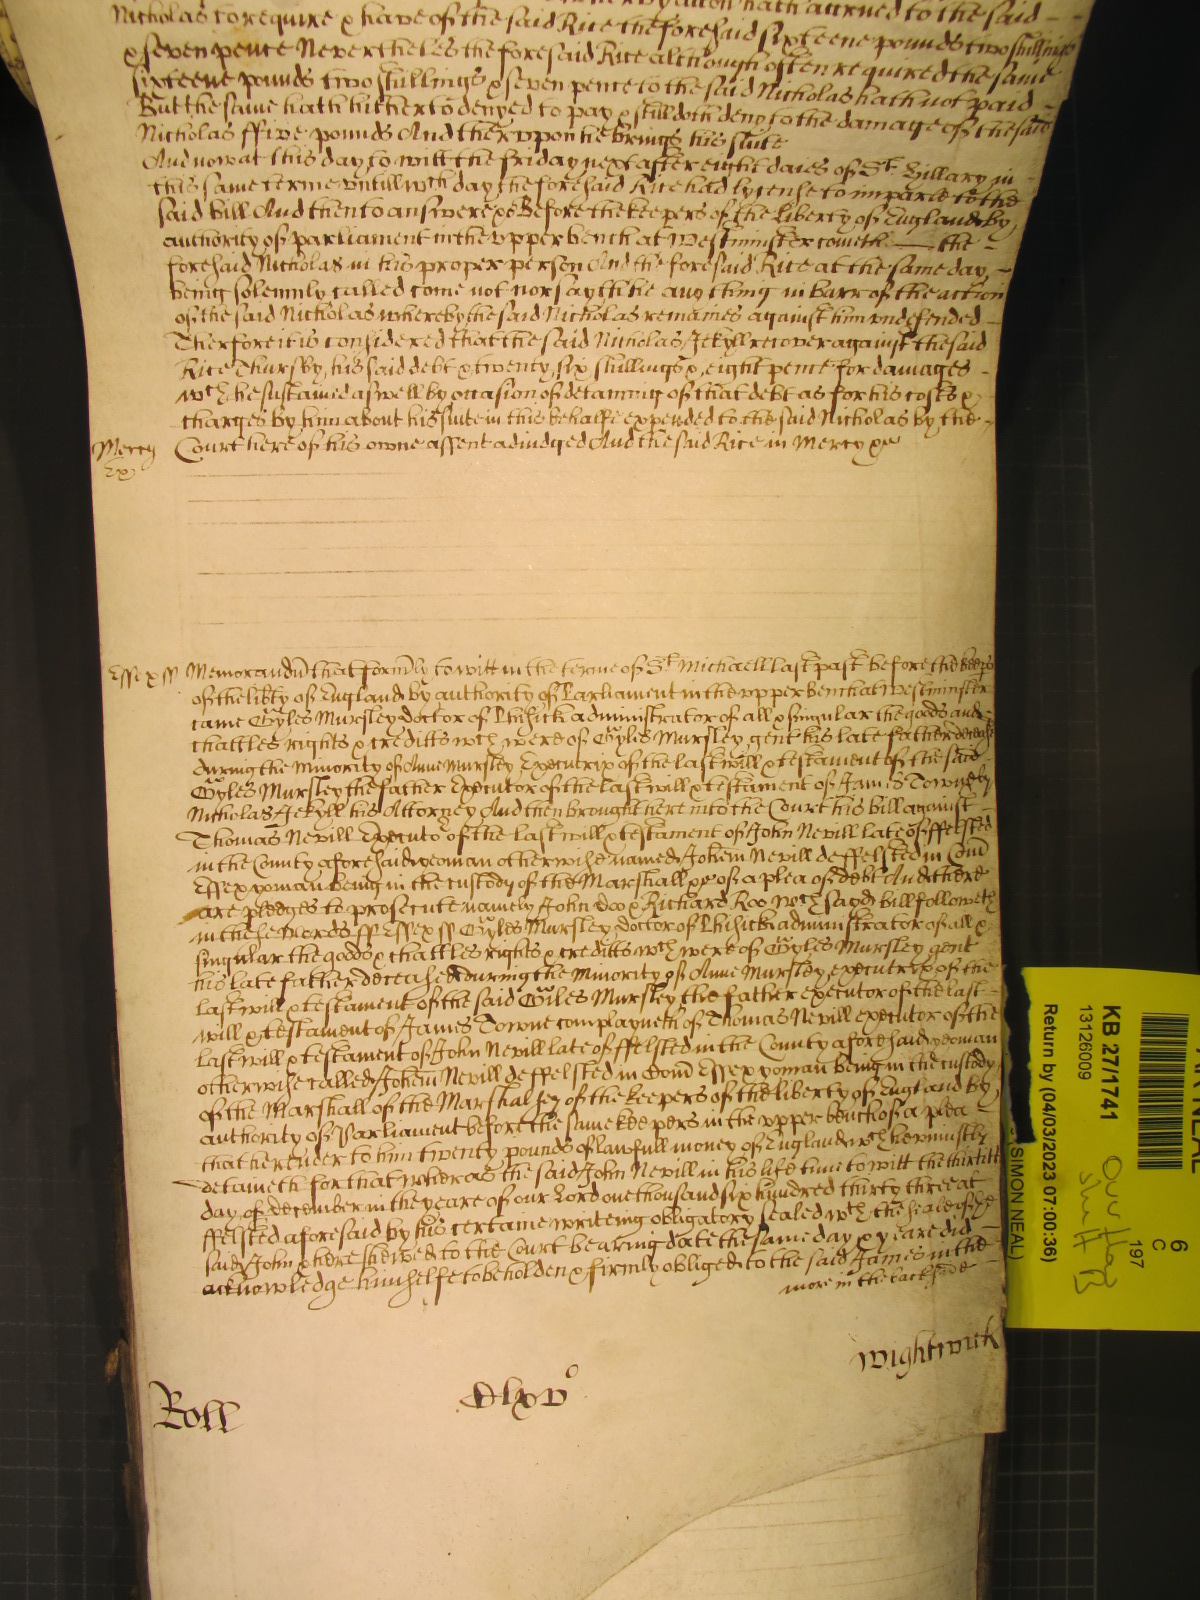 hath accrued to the said
Nicholas to require & have of the said Rice the foresaid sixteene pounds two shillings
& seven pence Nevertheles the foresaid Rice although often required the same
sixteene pounds two shillings & seven pence to the said Nicholas hath not paid
But the same hath hitherto denyed to pay & still doth deny to the damage of the said
Nicholas ffive pounds And therevppon he brings his suite
And now at this day, to witt the friday next after eight daies of St. Hillary in
this same terme vntill wch day the foresaid Rice had lycense to imparle to the
said bill And then to answere &c Before the keepers of the liberty of England by
authority of parliament in the vpper bench at Westminster cometh the
foresaid Nicholas in his proper person And the foresaid Rice at the same day,
being solemnly called come not nor sayth he any thing in barr of the action
of the said Nicholas whereby the said Nicholas remaines against him vndefended
Therfore it is considered that the said Nicholas Jekyll recover against the said
Rice Thursby, his said debt & twenty, six shillings & eight pence for damages
wch he sustained aswell by occasion of detaining of that debt as for his costs &
charges by him about his suite in this behalfe expended to the said Nicholas by the
Mercy Court here of his owne assent adiudged And the said Rice in Mercy &c
Ex
Essex ss Memorandum that formerly to witt in the terme of St. Michaell last past before the keeps
of the liberty of England by authority of Parliament in the vpper bench at Westminster
came Gyles Mursley doctor of Phisick administrator of all & singular the goods and
chattles rights & creditts wch were of Gyles Mursley, gent his late father deceased
during the Minority of Anne Mursley Executrix of the last will & testament of the said
Gyles Mursley the father Executor of the last will & testament of James Towne by
Nicholas Jekyll his Attorney And then brought here into the Court his bill against
Thomas Nevill Executor of the last will & testament of John Nevill late of ffelsted
in the County aforesaid yeoman otherwise named Johem Nevill de ffelsted in Com
Essex yoman being in the custody of the Marshall &c of a plea of debt And there
are pledges to prosecute namely John Doo & Richard Roo wch sayd bill followeth
in these words ss Essex ss Gyles Mursley doctor of Phisick administrator of all &
singular the goods & chattles rights & creditts wch were of Gyles Mursley gent
his late father deceased during the Minority of Anne Mursley, executrix of the
last will & testament of the said Giles Mursley the father executor of the last
will & testament of James Towne complayneth of Thomas Nevill executor of the
last will & testament of John Nevill late of ffelsted in the County aforesaid yeoman
otherwise called Johem Nevill de ffelsted in Com Essex yoman being in the custody
of the Marshall of the Marshalsey of the keepers of the liberty of England by
authority of Parliament before the same keepers in the vpper bench of a plea
that he render to him twenty pounds of lawfull money of England wch he uniustly
detaineth for that wheras the said John Nevill in his life time to witt the thirtith
day of december in the yeare of our Lord one thousand six hundred thirty three at
ffelsted aforesaid by his certaine writeing obligatory sealed wth the seale of the
said John & here shewed to the Court bearing date the same day & yeare did
acknowledge himselfe to be holden & firmly obliged to the said James in the
more in the back side
Wightwick
Roll Dlxvo
6
C
197
KB 27/1741
13126009
Return by (04/03/2023 07:00:36)
(SIMON NEAL)